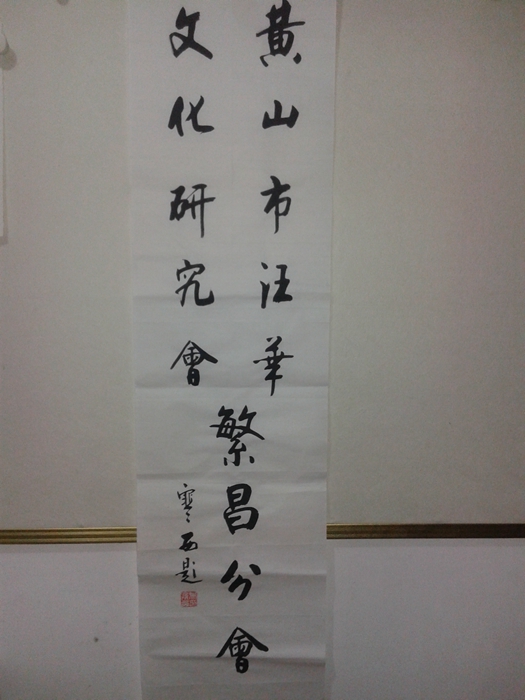 黄山市汪華
文化研究會
繁昌分會